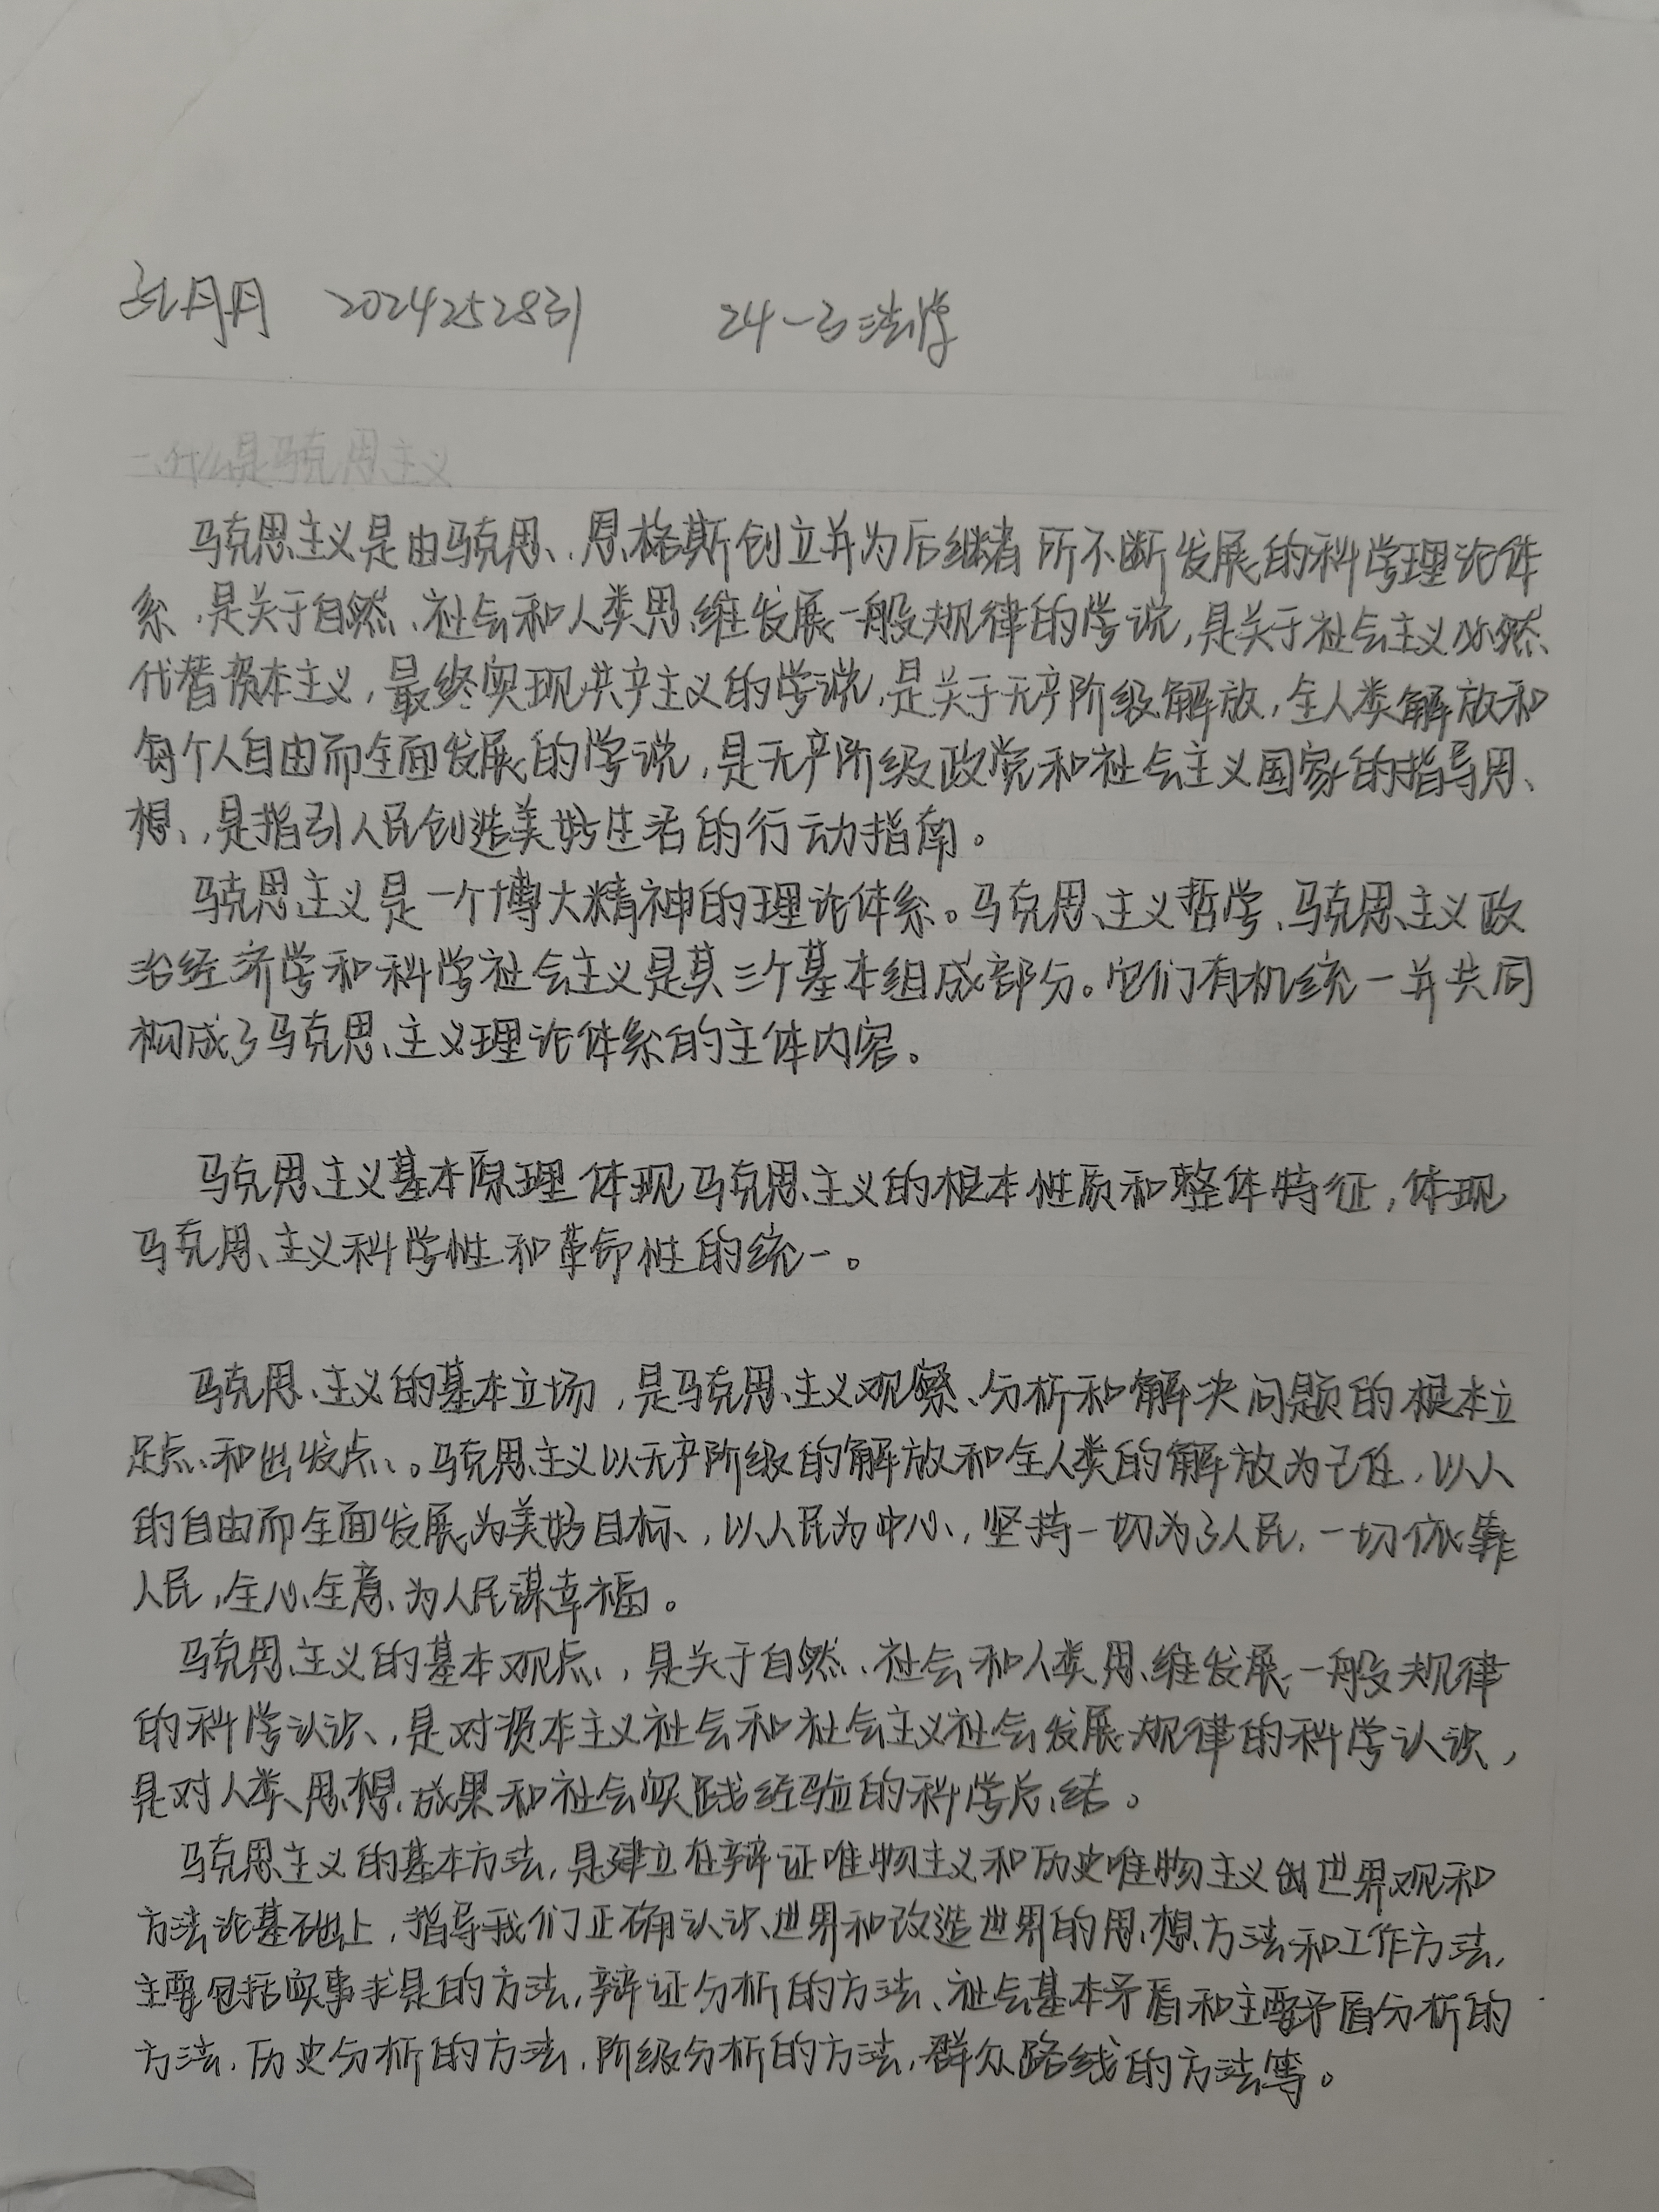 孔丹丹 2024252831 24-3法学
一、什么是马克思主义
马克思主义是由马克思、恩格斯创立并为后继者所不断发展的科学理论体
系,是关于自然、社会和人类思维发展一般规律的学说,是关于社会主义必然
代替资本主义,最终实现共产主义的学说,是关于无产阶级解放,全人类解放和
每个人自由而全面发展的学说,是无产阶级政党和社会主义国家的指导思
想,是指引人民创造美好生活的行动指南。
马克思主义是一个博大精神的理论体系。马克思主义哲学、马克思主义政
治经济学和科学社会主义是其三个基本组成部分。它们有机统一并共同
构成了马克思主义理论体系的主体内容。
马克思主义基本原理体现马克思主义的根本性质和整体特征,体现
马克思主义科学性和革命性的统一。
马克思主义的基本立场,是马克思主义观察、分析和解决问题的根本立
足点和出发点。马克思主义以无产阶级的解放和全人类的解放为己任,以人
的自由而全面发展为美好目标,以人民为中心,坚持一切为了人民,一切依靠
人民,全心全意为人民谋幸福。
马克思主义的基本观点,是关于自然、社会和人类思维发展一般规律
的科学认识,是对资本主义社会和社会主义社会发展规律的科学认识,
是对人类思想成果和社会实践经验的科学总结。
马克思主义的基本方法,是建立在辩证唯物主义和历史唯物主义世界观和
方法论基础上,指导我们正确认识世界和改造世界的思想方法和工作方法,
主要包括实事求是的方法,辩证分析的方法、社会基本矛盾和主要矛盾分析的
方法,历史分析的方法,阶级分析的方法,群众路线的方法等。